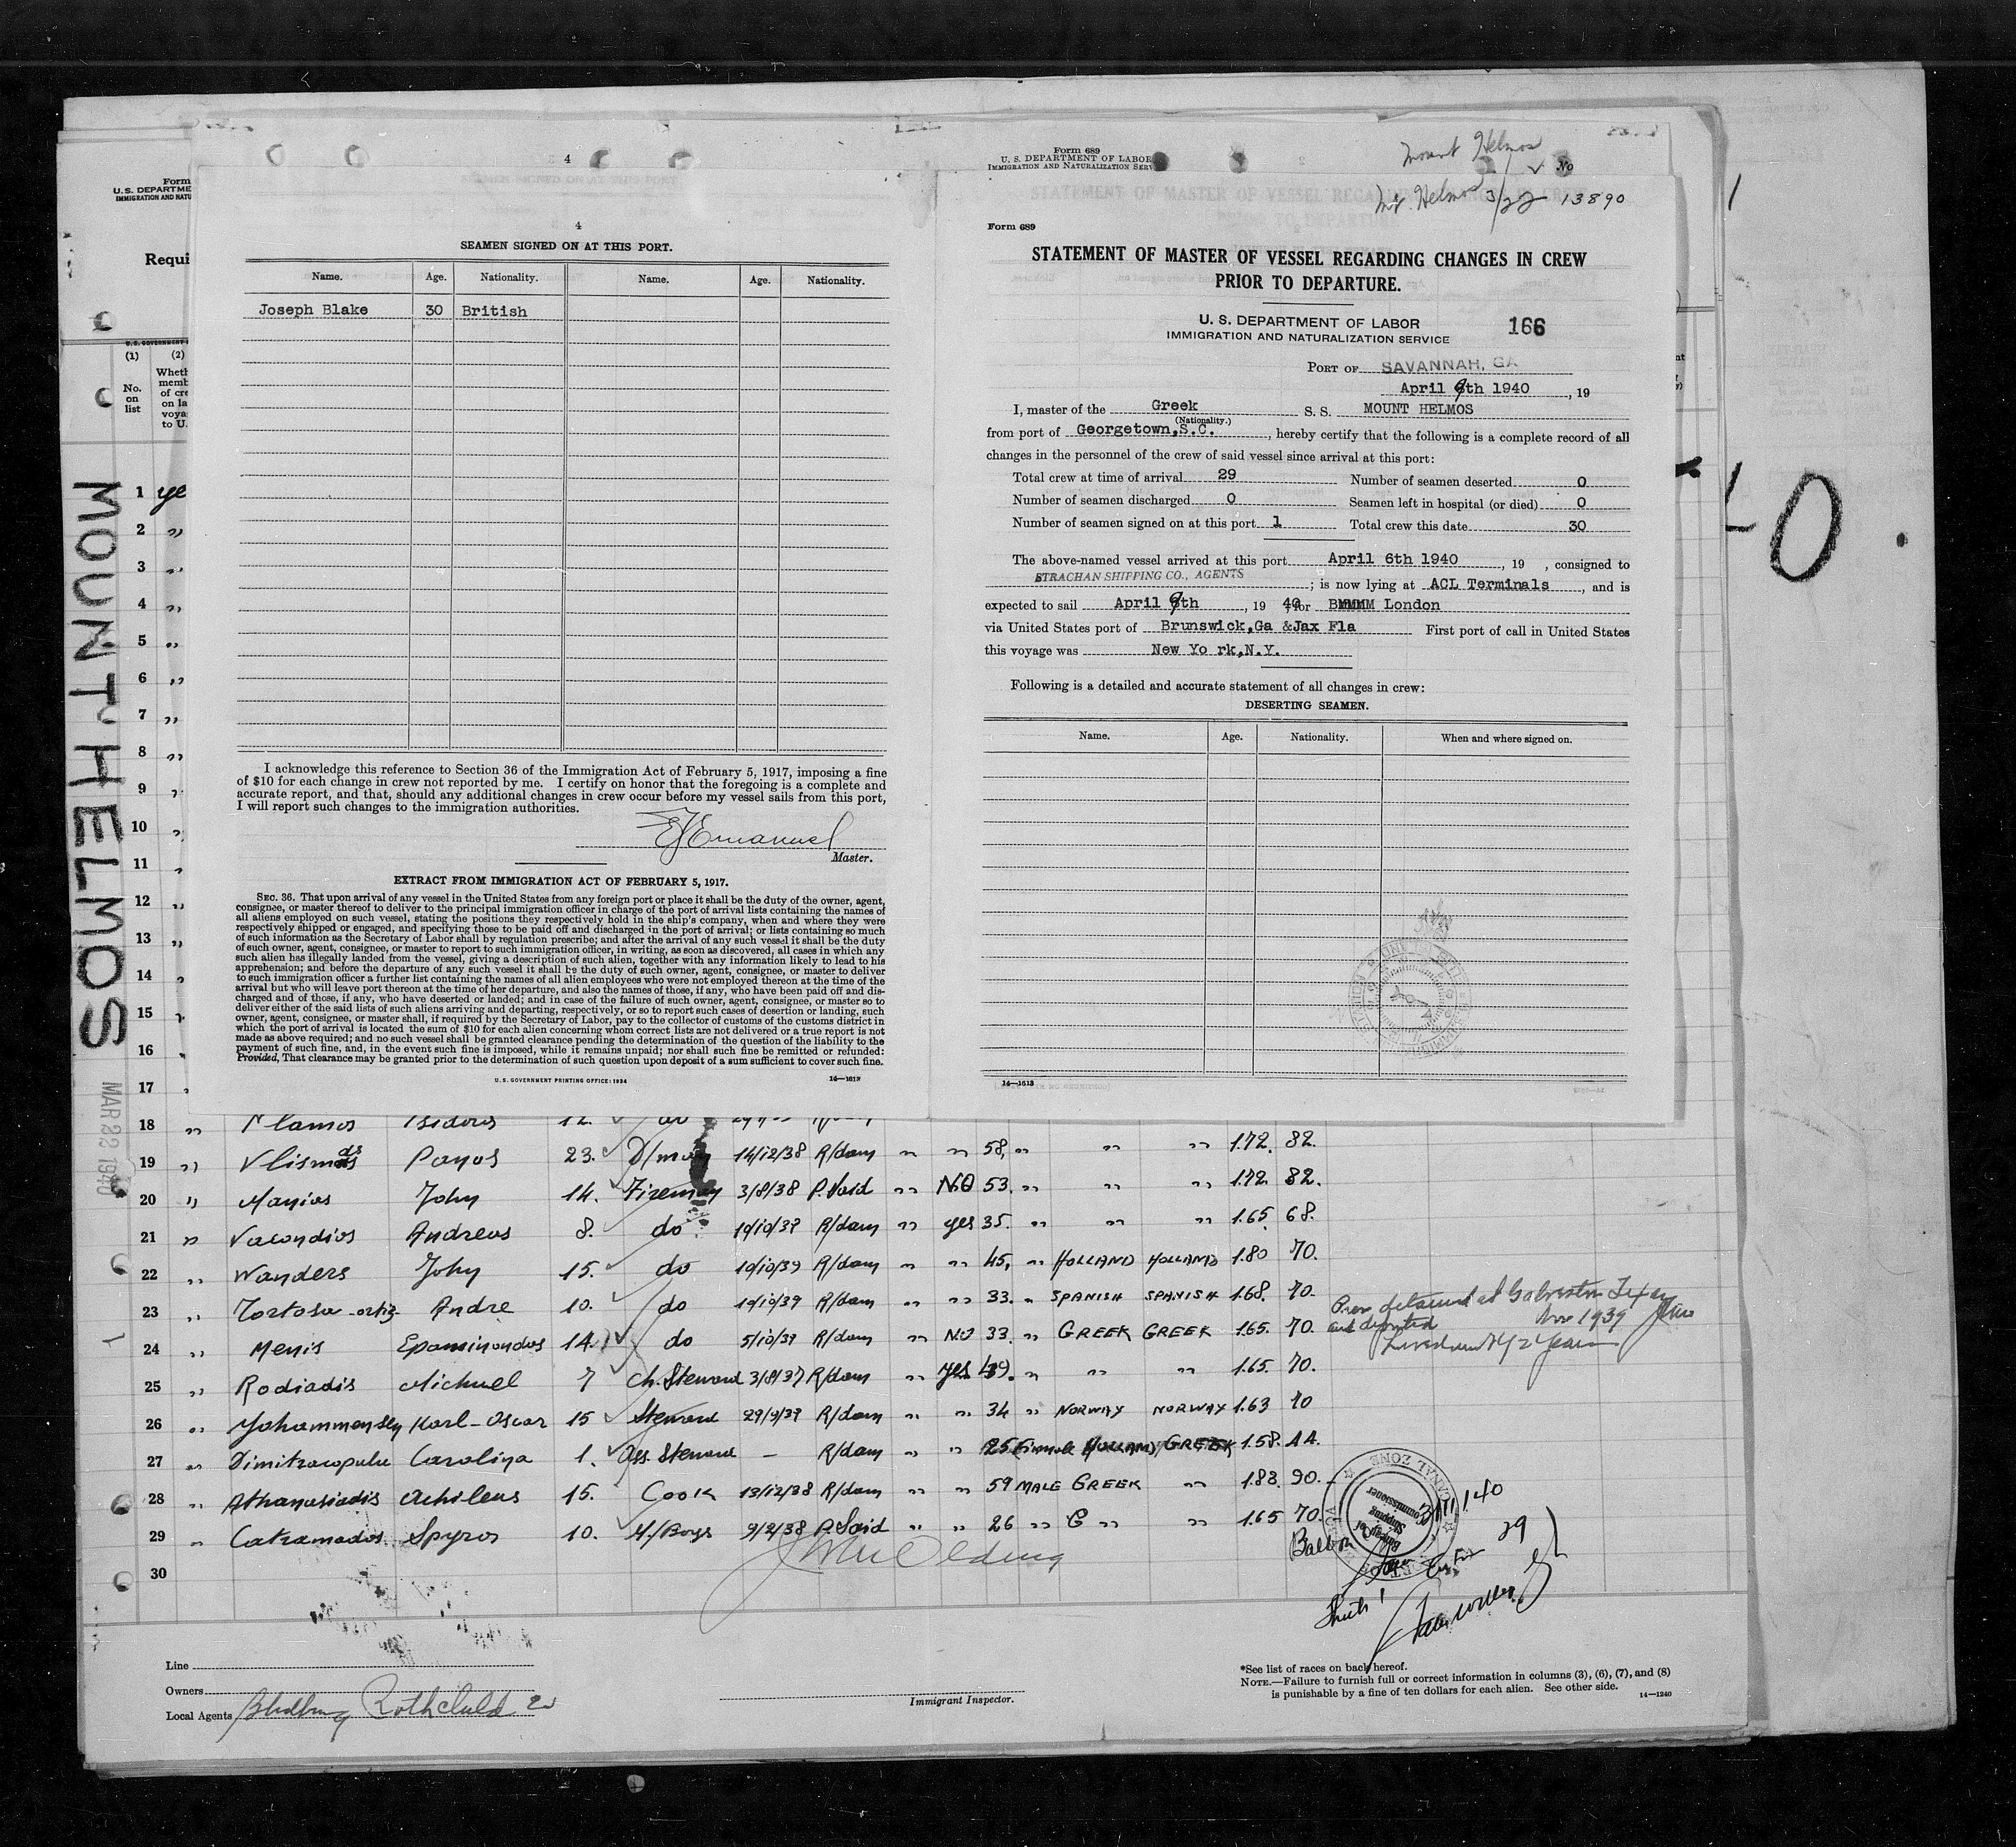 Mount Helmos
No
Mt. Helmos 3/22 13890
Form 689
U. S. DEPARTMENT OF LABOR
IMMIGRATION AND NATURALIZATION SERV
4
4
SEAMEN SIGNED ON AT THIS PORT.
Name. Age. Nationality. Name. Age. Nationality.
Joseph Blake 30 British
I acknowledge this reference to Section 36 of the Immigration Act of February 5, 1917, imposing a fine
of $10 for each change in crew not reported by me. I certify on honor that the foregoing is a complete and
accurate report, and that, should any additional changes in crew occur before my vessel sails from this port,
I will report such changes to the immigration authorities.
Emanuel
Master.
EXTRACT FROM IMMIGRATION ACT OF FEBRUARY 5, 1917.
SEC. 36. That upon arrival of any vessel in the United States from any foreign port or place it shall be the duty of the owner, agent,
consignee, or master thereof to deliver to the principal immigration officer in charge of the port of arrival lists containing the names of
all aliens employed on such vessel, stating the positions they respectively hold in the ship's company, when and where they were
respectively shipped or engaged, and specifying those to be paid off and discharged in the port of arrival; or lists containing so much
of such information as the Secretary of Labor shall by regulation prescribe; and after the arrival of any such vessel it shall be the duty
of such owner, agent, consignee, or master to report to such immigration officer, in writing, as soon as discovered, all cases in which any
such alien has illegally landed from the vessel, giving a description of such alien, together with any information likely to lead to his
apprehension; and before the departure of any such vessel it shall be the duty of such owner, agent, consignee, or master to deliver
to such immigration officer a further list containing the names of all alien employees who were not employed thereon at the time of the
arrival but who will leave port thereon at the time of her departure, and also the names of those, if any, who have been paid off and dis-
charged and of those, if any, who have deserted or landed; and in case of the failure of such owner, agent, consignee, or master so to
deliver either of the said lists of such aliens arriving and departing, respectively, or so to report such cases of desertion or landing, such
owner, agent, consignee, or master shall, if required by the Secretary of Labor, pay to the collector of customs of the customs district in
which the port of arrival is located the sum of $10 for each alien concerning whom correct lists are not delivered or a true report is not
made as above required; and no such vessel shall be granted clearance pending the determination of the question of the liability to the
payment of such fine, and, in the event such fine is imposed, while it remains unpaid; nor shall such fine be remitted or refunded:
Provided, That clearance may be granted prior to the determination of such question upon deposit of a sum sufficient to cover such fine.
U. S. GOVERNMENT PRINTING OFFICE: 1934 14—1613
Form 689
STATEMENT OF MASTER OF VESSEL REGARDING CHANGES IN CREW
PRIOR TO DEPARTURE.
U. S. DEPARTMENT OF LABOR
IMMIGRATION AND NATURALIZATION SERVICE
166
PORT OF SAVANNAH, GA
April 9th 1940, 19
I, master of the Greek S. S. MOUNT HELMOS
(Nationality.)
from port of Georgetown,S.C., hereby certify that the following is a complete record of all
changes in the personnel of the crew of said vessel since arrival at this port:
Total crew at time of arrival 29 Number of seamen deserted 0
Number of seamen discharged 0 Seamen left in hospital (or died) 0
Number of seamen signed on at this port 1 Total crew this date 30
The above-named vessel arrived at this port April 6th 1940, 19 , consigned to
STRACHAN SHIPPING CO., AGENTS; is now lying at ACL Terminals, and is
expected to sail April 9th, 19 40, for London
via United States port of Brunswick,Ga &Jax Fla First port of call in United States
this voyage was New Yo rk,N.Y.
Following is a detailed and accurate statement of all changes in crew:
DESERTING SEAMEN.
Name. Age. Nationality. When and where signed on.
14—1613
Form
U. S. DEPARTME
IMMIGRATION AND NATU
Requi
(1) (2)
No. on list
Wheth
memb
of cre
on la
voya
to U.
MOUNT HELMOS
MAR 22 1940
1 ye
2 "
3 "
4 "
5 "
6 "
7 "
8 "
9 "
10 "
11 "
12 "
13 "
14 "
15 "
16
17
18 " Isidoros 12. do
" " 1.72. 82.
19 " Panos 23. D/man 14/12/38 R/dam " " 58, " " " 1.72. 82.
20 " Manios John 14. Fireman 3/8/38 P.Said " NO 53. " " " 1.72 82.
21 " Vacondios Andreas 8. do 10/10/39 R/dam " yes 35. " " " 1.65. 68.
22 " Wanders John 15. do 10/10/39 R/dam " " 45, " HOLLAND HOLLAND 1.80 70.
23 " Tortosa-ortiz Andre 10. do 10/10/39 R/dam " " 33. " SPANISH SPANISH 1.68. 70.
24 " Menis Epaminondas 14. do 5/10/39 R/dam " NO 33. " GREEK GREEK 1.65. 70.
detained at Galveston Texas
and deported Nov 1939
25 " Rodiadis Michael 7 Ch.Steward 3/8/37 R/dam " yes 49. " " " 1.65. 70.
26 " Johammensen Karl-Oscar 15 Steward 29/9/39 R/dam " " 34 " NORWAY NORWAY 1.63 70
27 " Dimitracopulu Carolina 1. Ass. Steward – R/dam " " 25 Female HOLLAND GREEK 1.58. 44.
28 " Athanasiadis Achileas 15. Cook 13/12/38 R/dam " " 59 MALE GREEK " 1.83. 90.
29 " Catramados Spyros 10. M/Boys 9/2/38 P.Said " " 26 " " " 1.65 70.
30
CANAL ZONE
Shipping Commissioner
Balboa
29
Line
Owners
Local Agents Rothchild
Immigrant Inspector.
*See list of races on back hereof.
NOTE.—Failure to furnish full or correct information in columns (3), (6), (7), and (8)
is punishable by a fine of ten dollars for each alien. See other side. 14—1240